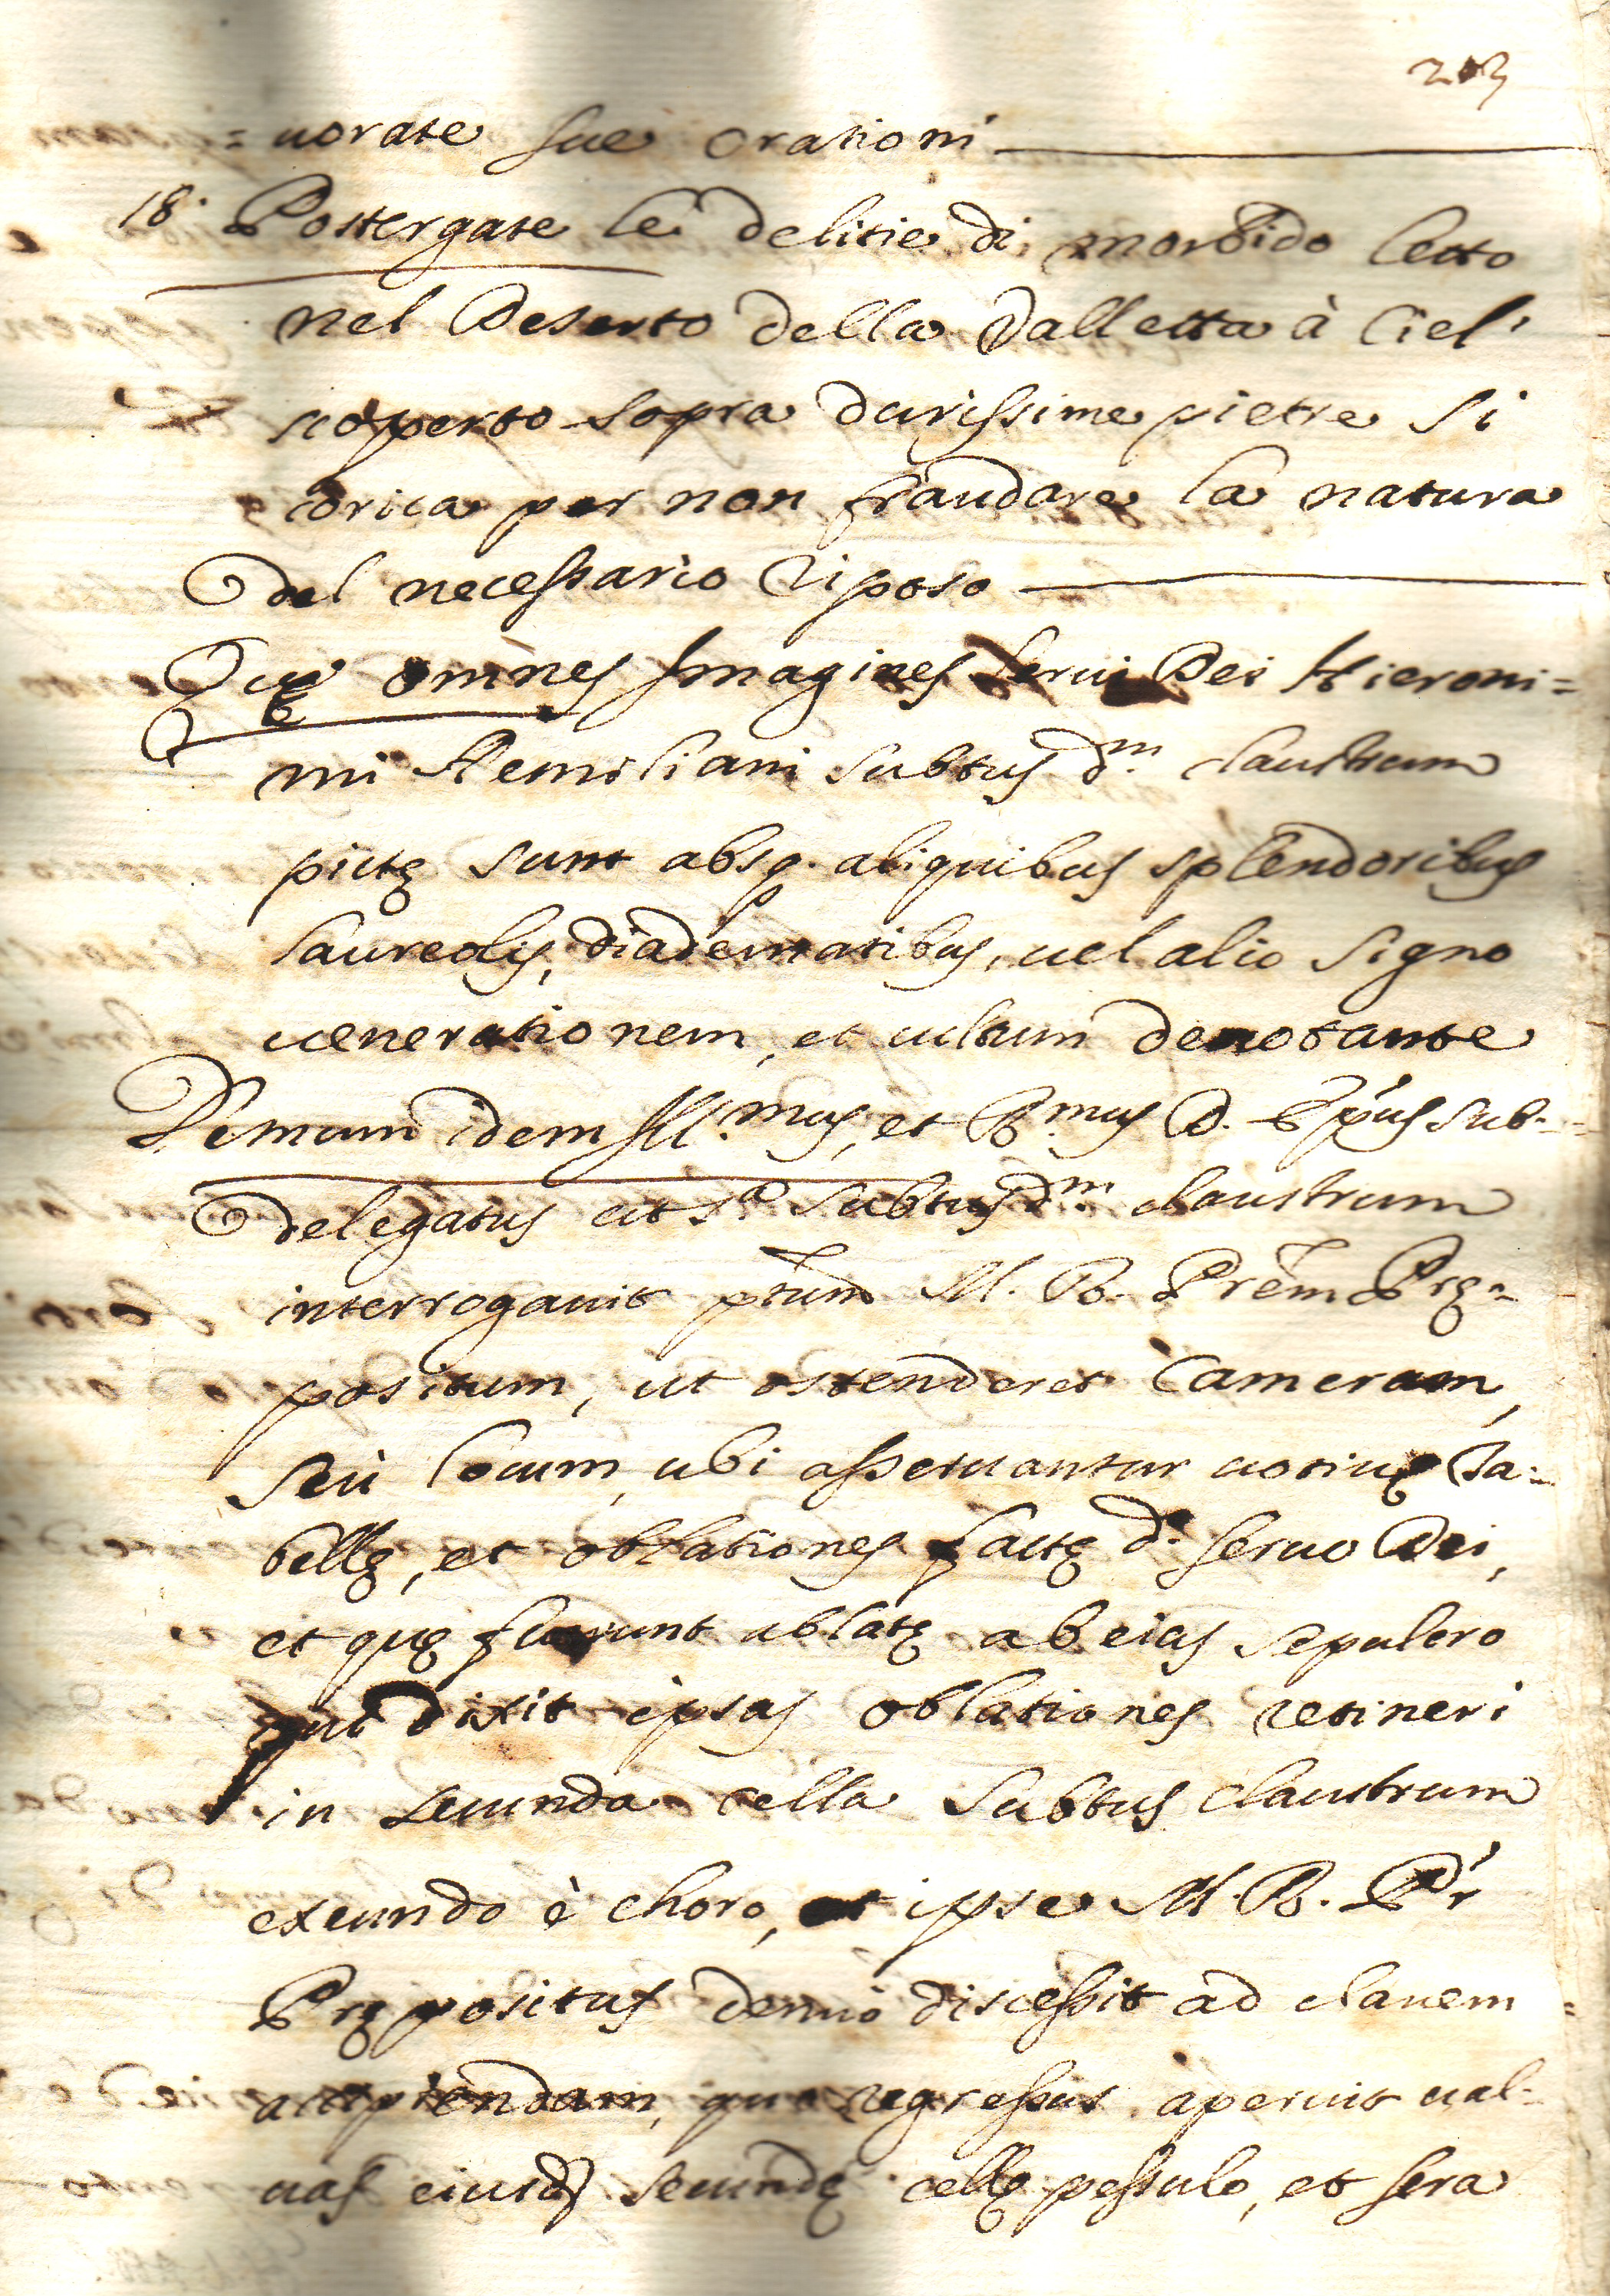 213
= uorate sue orationi
18. Postergate le delitie di morbido letto
nel Deserto della Valletta à Ciel'
scoperto sopra durissime pietre si
corica per non fraudare la natura
del necessario riposo
Quę omnes Imagines Serui Dei Hieroni=
mi Aemiliani subtus d.m claustrum
pictę sunt absq. aliquibus splendoribus
laureolis, diadematibus, uel alio signo
uenerationem, et cultum denotante
Demum idem Ill.mus, et R.mus D. Ep̃us sub=
delegatus ut s.a subtus d.m claustrum
interrogauit p̃tum M. R. P̃rem Prę=
positum, ut ostenderet Cameram,
seù locum, ubi asseruantur uotiuę Ta=
bellę, et oblationes factę d.o seruo Dei,
et quę fuerunt ablatę ab eius sepulcro
qui dixit ipsas oblationes retineri
in secunda cella subtus claustrum
exeundo è choro, et ipse M. R. P'r
Prępositus denuò discessit ad clauem
accipiendam, qua regressus aperuit ual=
uas eiusd. secundę cellę pessulo, et sera